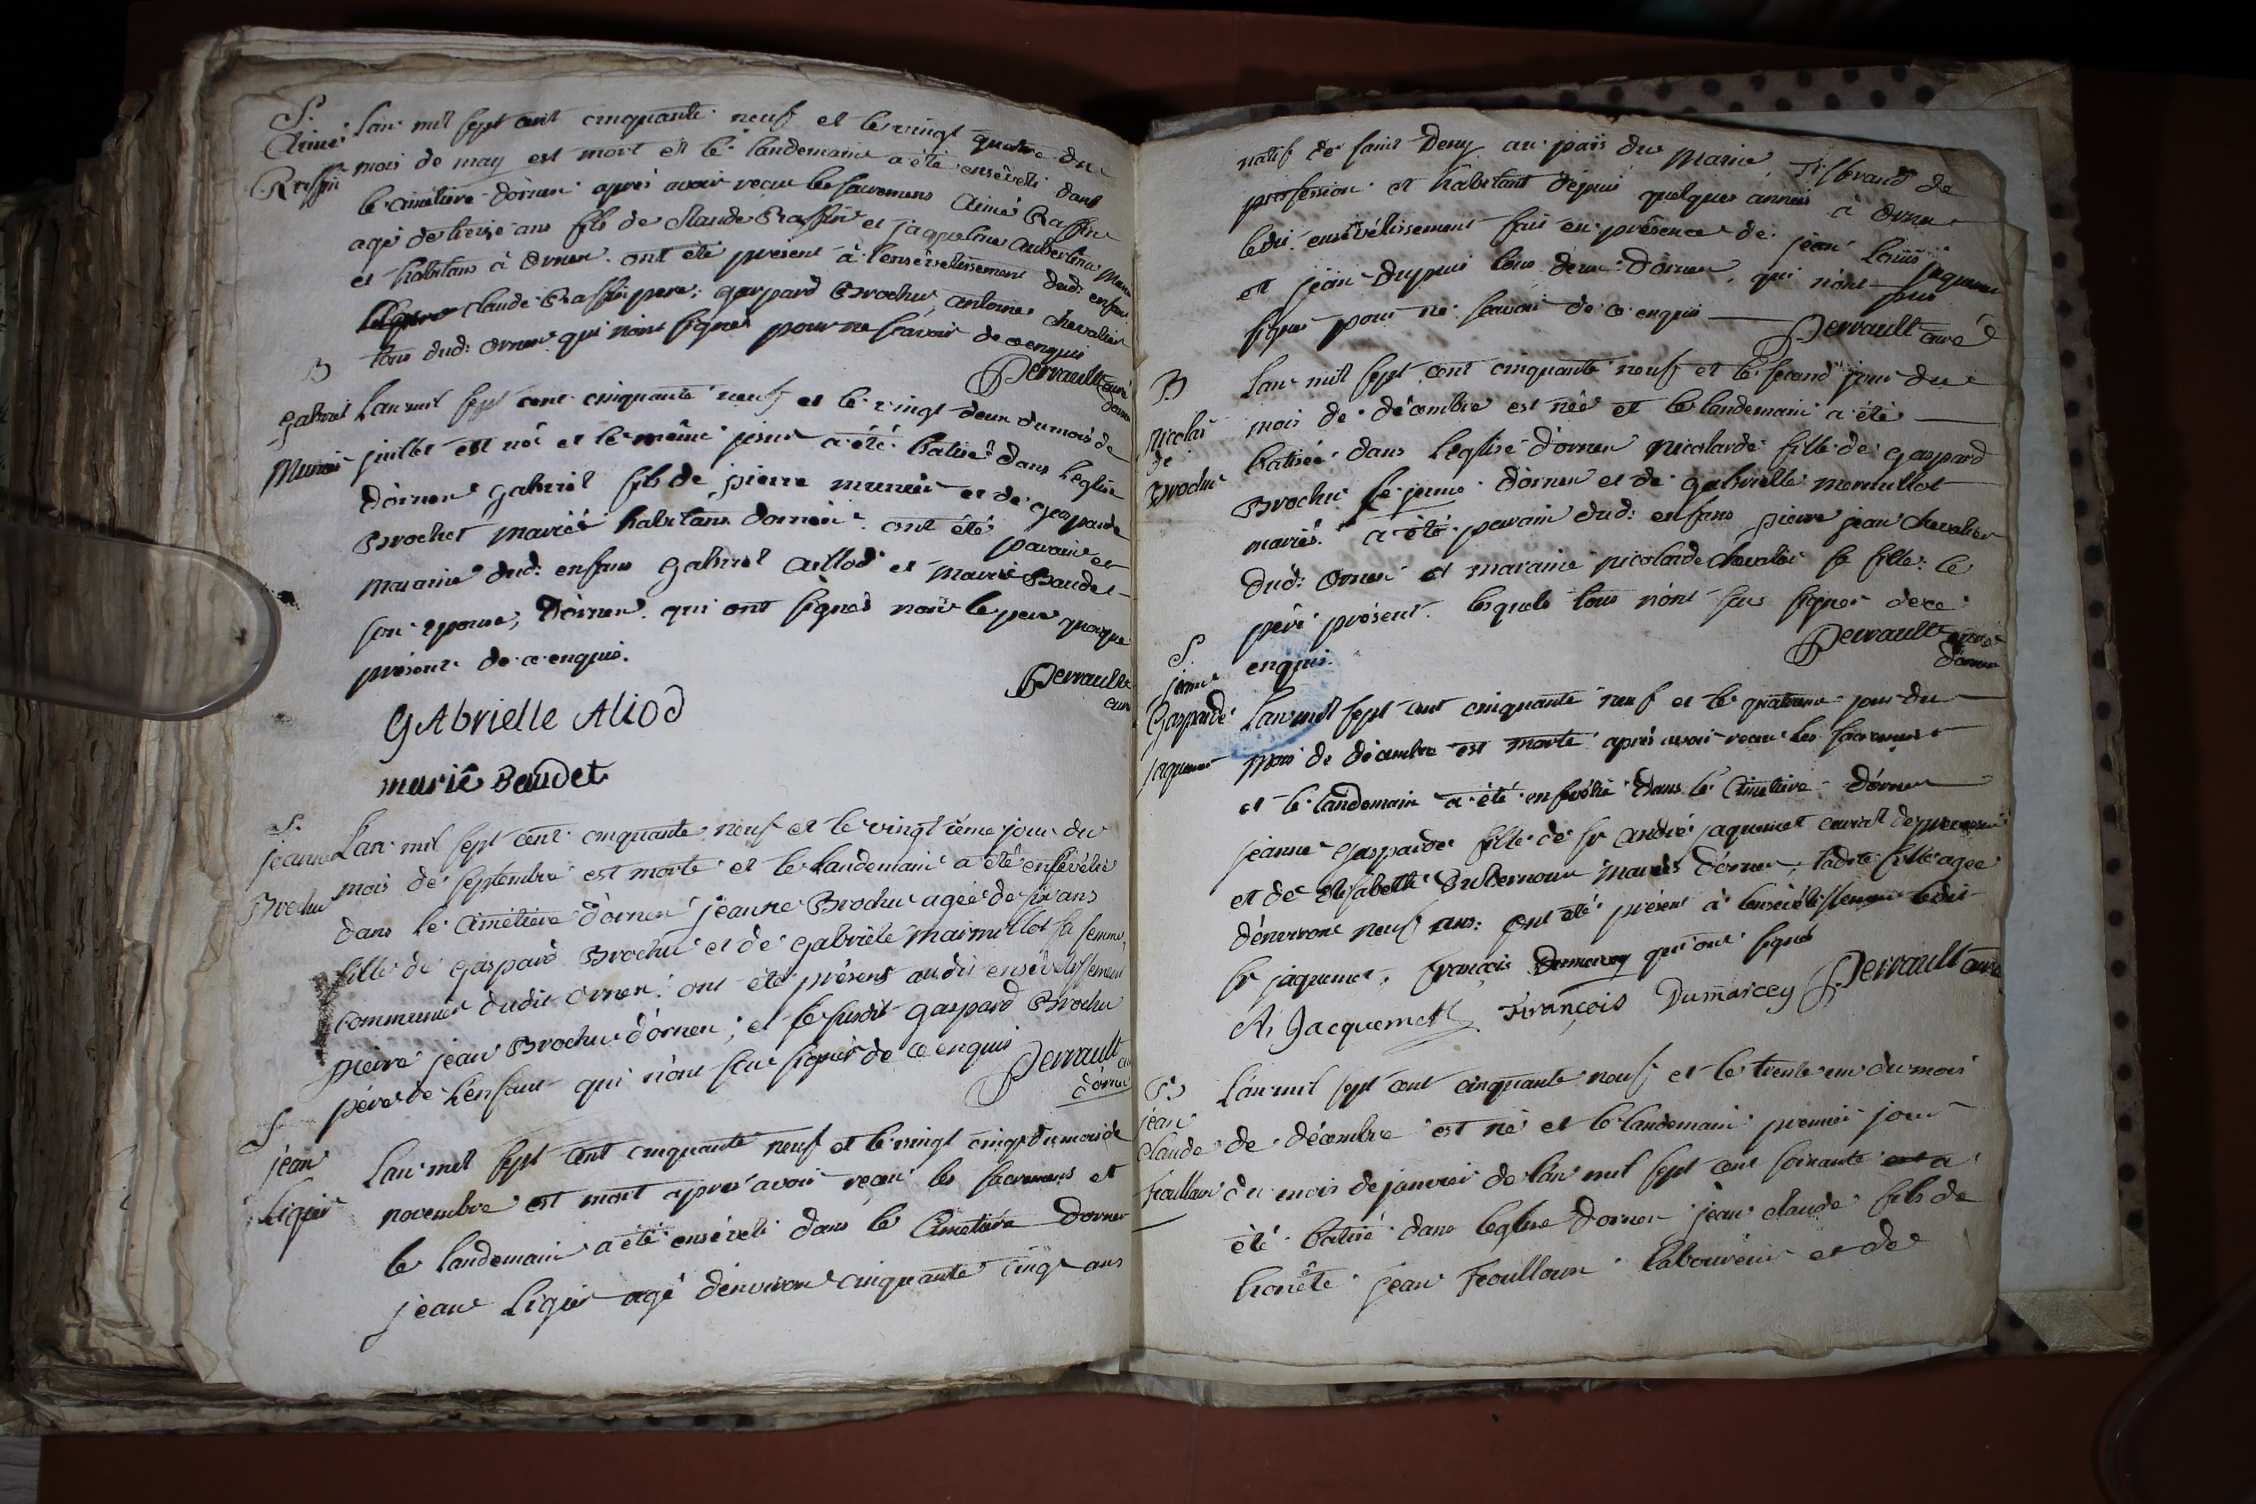 S.
Aimé
Raffin
Lan mil sept cent cinquante neuf et le vingt quatre du
mois de may est mort et le landemain a été enséveli dans
le cimétiere dornen aprés avoir recu les sacremens Aimé Raffin
agé de treize ans fils de Claude Raffin et jaqueline Aubertin
et habitans à Ornen ont été présent à l'ensévelissement dud: enfant
Claude Raffin pere; gaspard Brochu antoine chevalier
tous dud: Ornen qui n'ont signés pour ne scavoir de ce enquis
Perrault curé
dornen
B
gabriel
Munier
Lan mil sept cent cinquante neuf et le vingt deux du mois de
juillet est né et le même jour a été batisé dans l'eglise
dornen gabriel fils de pierre munier et de gasparde
Brochet mariés habitans dornen ont été parain et
maraine dud: enfans gabriel Aillod et marie Baudet
son epouse, dornen qui ont signés non le pere quoque
présent de ce enquis.
Perrault
curé
GAbrielle Aliod
marie Baudet
S.
jeanne
Brochu
Lan mil sept cent cinquante neuf et le vingt iéme jour du
mois de septembre est morte et le landemain a été ensévélie
dans le cimétiere dornen jeanne Brochu agée de six ans
fille de gaspard Brochu et de gabriele maimillot sa femme,
communier dudit Ornen: ont été présent audit ensévelissement
pierre jean Brochu dornen; et le susdit gaspard Brochu
pére de l'enfant qui n'ont scu signer de ce enquis
Perrault curé
dornen
S
jean
Ligier
Lan mil sept cent cinquante neuf et le vingt cinq du mois de
novembre est mort aprés avoir reçu les sacremens et
le landemain a été enséveli dans le Cimetiere dornen
jean Ligier agé d'environ cinquante cinq ans
natif de saint Deny au païs du Maine Tisserand de
profession et habitant depuis quelques années à Ornen
ledit ensévélissement fait en présence de jean Louis jaquemet
et jean dupuis tous deux dornen, qui n'ont pus
signer pour ne scavoir de ce enquis
Perrault curé
B
Nicolarde
Brochu
Lan mil sept cent cinquante neuf et le second jour du
mois de décembre est née et le landemain a été
batisée dans l'eglise dornen Nicolarde fille de gaspard
Brochu le jeune dornen et de gabrielle
mariés. a été parain dud: enfans pierre jean chevalier
dud: Ornen et maraine nicolarde chevalier sa fille: le
pére présent lesquels tous n'ont scus signer de ce
enquis.
Perrault curé
dornen
S.
jeanne
Gasparde
jaquemet
Lan mil sept cent cinquante neuf et le quatrieme jour du
mois de décembre est morte aprés avoir recu les sacremens
et le landemain a été ensévélie dans le Cimetiere dornen
jeanne gasparde fille de sr andré jaquemet
et de Elisabeth mariés dornen, ladite fille agée
d'environ neuf ans: ont été présent à l'ensévélissement ledit
sr jaquemet, François Dumarcey qui ont signés
A; Jacquemet François Dumarcey Perrault curé
B
jean
claude
Foullain
Lan mil sept cent cinquante neuf et le trente un du mois
de décembre est né et le landemain premier jour
du mois de janvier de l'an mil sept cent soixante a
été batisé dans l'eglise dornen jean claude fils de
honête jean laboureur et de